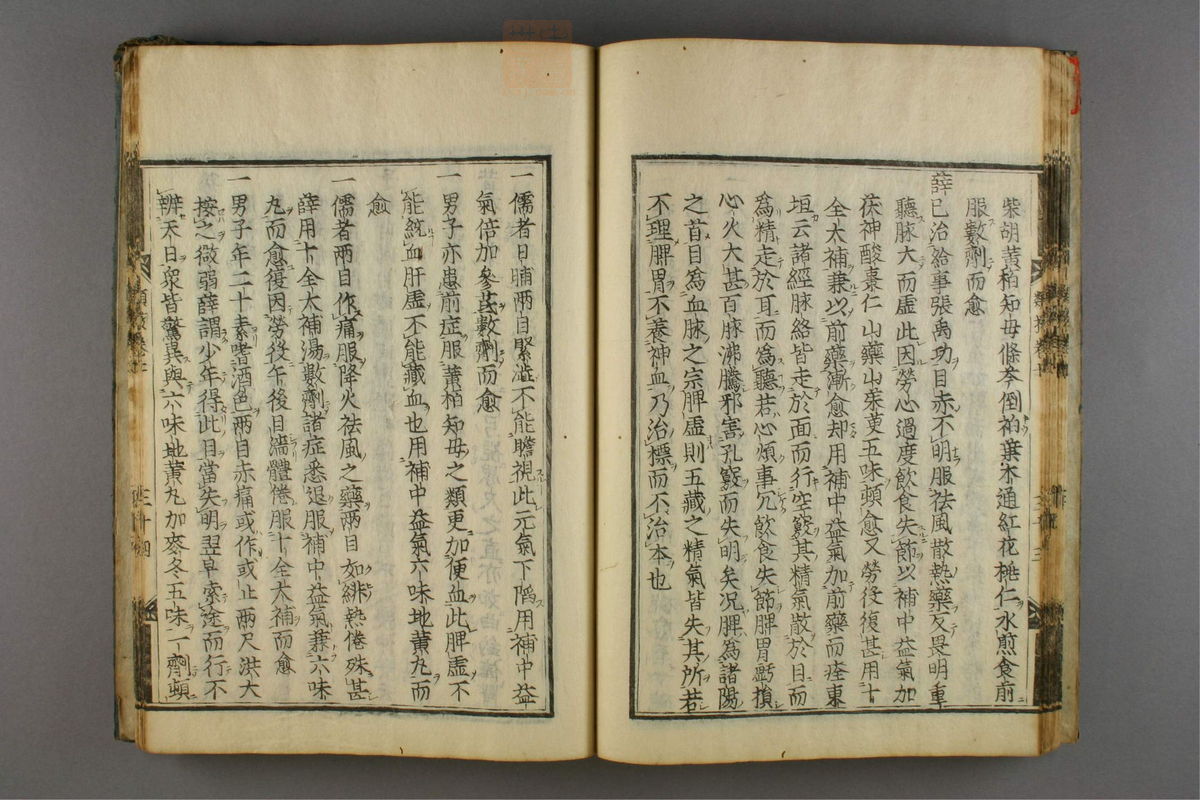 柴胡黄柏知母條芩倒柏葉木通紅花桃仁水煎食前
服數劑而愈
薛已治給事張禹功目赤不明服祛風散熱藥反畏明重
聽脉大而虛此因勞心過度飲食失節以補中益氣加
茯神酸棗仁山藥山茱萸五味頓愈又勞役復甚用十
全大補兼以前藥漸愈却用補中益氣加前藥而痊東
垣云諸經脉絡皆走於面而行空竅其精氣散於目而
為精走於耳而為聽若心煩事冗飲食失節脾胃虧損
心火大甚百脉沸騰邪害孔竅而失明矣况脾為諸陽
之首目為血脉之宗脾虛則五藏之精氣皆失其所若
不理脾胃不養神血乃治標而不治本也
一儒者日晡兩目緊澁不能瞻視此元氣下陷用補中益
氣倍加參芪數劑而愈
一男子亦患前症服黄栢知母之類更加便血此脾虛不
能統血肝虛不能藏血也用補中益氣六味地黄丸而
愈
一儒者兩目作痛服降火祛風之藥兩目如緋熱倦殊甚
薛用十全大補湯數劑諸症悉退服補中益氣兼六味
丸而愈復因勞役午後目澁體倦服十全大補而愈
一男子年二十素嗜酒色兩目赤痛或作或止兩尺洪大
按之微弱薛謂少年得此目當失明翌早索途而行不
辨天日衆皆驚異與六味地黄丸加麥冬五味一劑頓